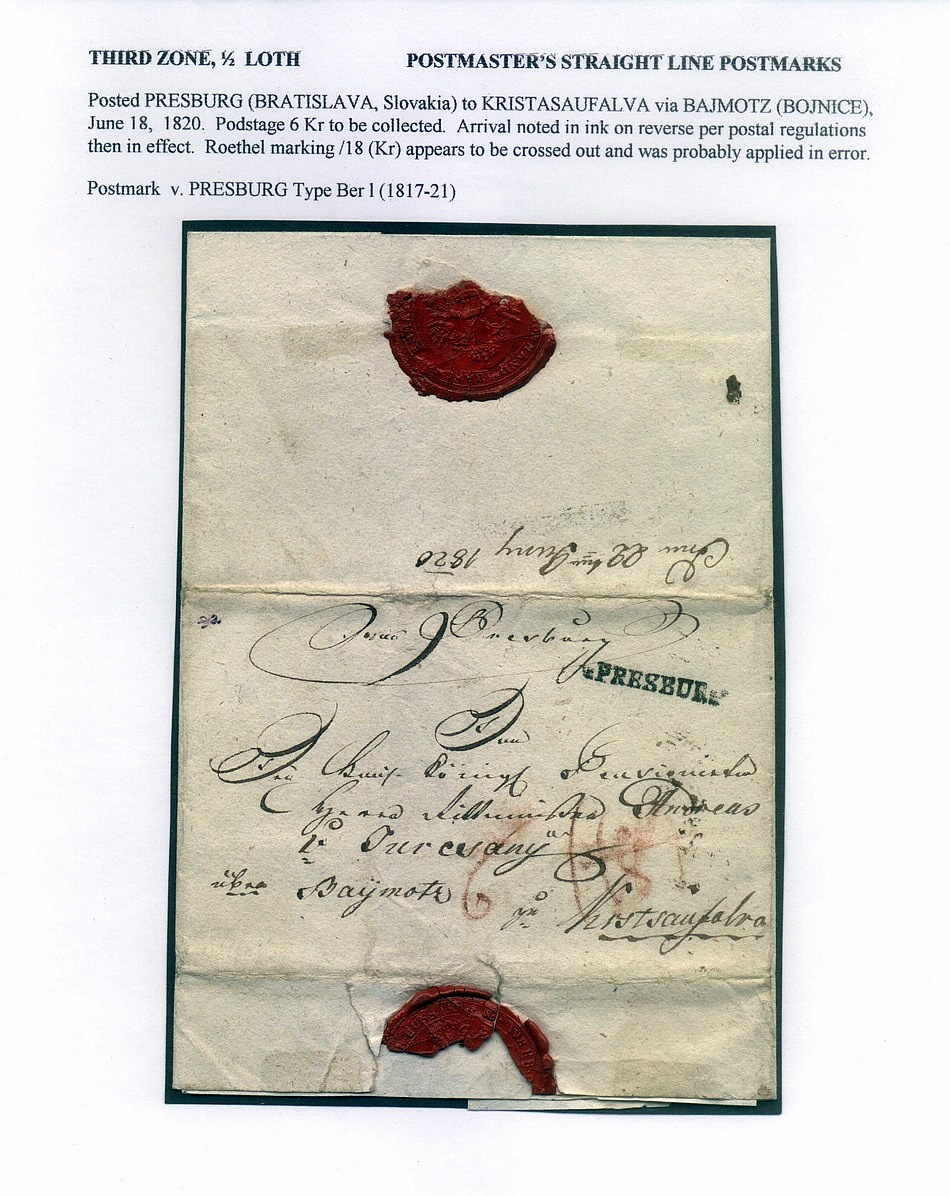 THIRD ZONE, ½ LOTH
POSTMASTER'S STRAIGHT LINE POSTMARKS
Posted PRESBURG (BRATISLAVA, Slovakia) to KRISTASAUFALVA via BAJMOTZ (BOJNICE),
June 18, 1820. Podstage 6 Kr to be collected. Arrival noted in ink on reverse per postal regulations
then in effect. Roethel marking /18 (Kr) appears to be crossed out and was probably applied in error.
Postmark v. PRESBURG Type Ber l (1817-21)
22 Juny 1820
Presburg
v. PRESBURG
Pensionirten
Herrn Rittmeister Andreas
v Turcsany
über Baÿmotz
6
zu Kristsaufalva